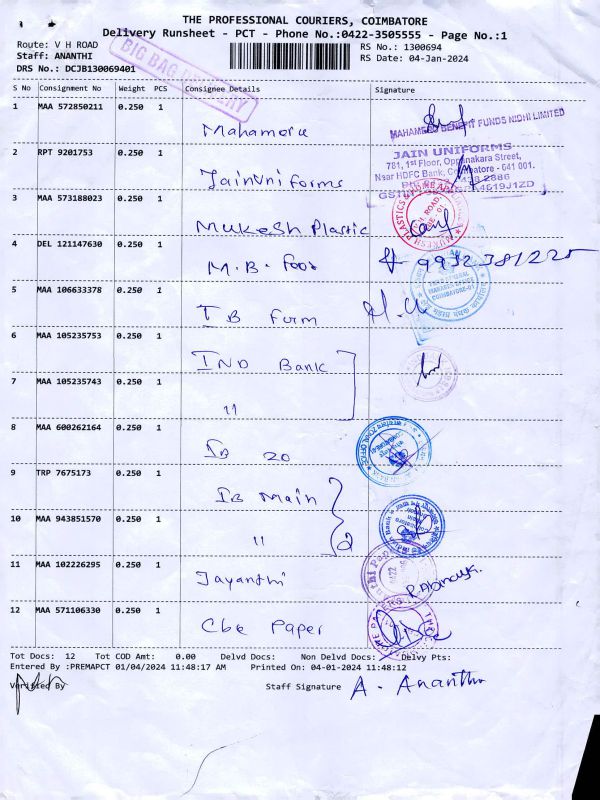 THE PROFESSIONAL COURIERS, COIMBATORE
Delivery Runsheet - PCT - Phone No.:0422-3505555 - Page No.:1
Route: V H ROAD
RS No.: 1300694
Staff: ANANTHI
RS Date: 04-Jan-2024
DRS No.: DCJB130069401
BIG BAG DELIVERY
S No Consignment No Weight PCS Consignee Details Signature
1 MAA 572850211 0.250 1 Mahameru
MAHAMERU BENEFIT FUNDS NIDHI LIMITED
2 RPT 9201753 0.250 1 Jain Uniforms
JAIN UNIFORMS
781, 1st Floor, Oppanakara Street,
Near HDFC Bank, Coimbatore - 641 001.
3 MAA 573188023 0.250 1 Mukesh Plastic
4 DEL 121147630 0.250 1 M.B. Foot 9932381225
5 MAA 106633378 0.250 1 IB Furm
6 MAA 105235753 0.250 1 IND Bank
7 MAA 105235743 0.250 1 "
8 MAA 600262164 0.250 1 IB ZO
9 TRP 7675173 0.250 1 IB Main
10 MAA 943851570 0.250 1 " 2
11 MAA 102226295 0.250 1 Jayanthi
12 MAA 571106330 0.250 1 Cbe Paper
Tot Docs: 12 Tot COD Amt: 0.00 Delvd Docs: Non Delvd Docs: Delvy Pts:
Entered By :PREMAPCT 01/04/2024 11:48:17 AM Printed On: 04-01-2024 11:48:12
Verified By Staff Signature A. Ananthi